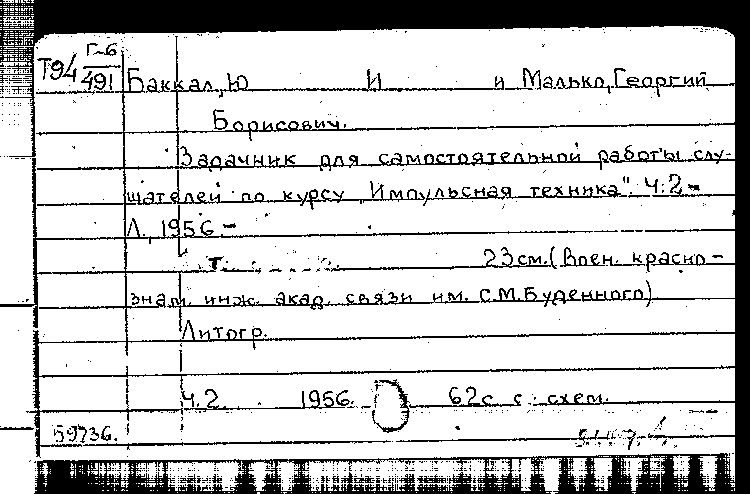 Т94 Г-6
491 Баккал, Ю И и Малько, Георгий
Борисович.
Задачник для самостоятельной работы слу-
шателей по курсу „Импульсная техника". Ч.2-
Л., 1956 -
23см. (Воен. красно-
знам. инж. акад. связи им. С.М. Буденного)
Литогр.
Ч.2. 1956. 62с с схем.
59736.